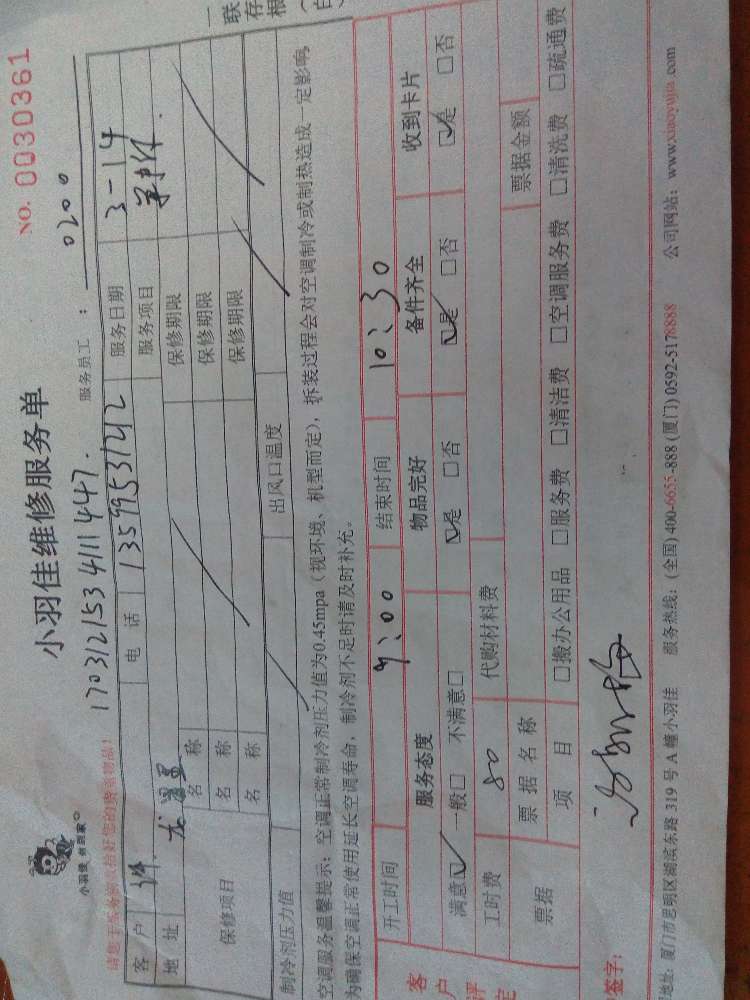 联存根
小羽佳维修服务单
NO. 0030361
小羽佳 点到家
170312153 4111447.
服务员工 : 0200
请您于服务前收拾好您的贵重物品!
客户 电话 13599531212 服务日期 3-14
地址 服务项目
保修项目 名称 保修期限
名称 保修期限
名称 保修期限
制冷剂压力值 出风口温度
空调服务温馨提示: 空调正常制冷剂压力值为0.45mpa (视环境、机型而定), 拆装过程会对空调制冷或制热造成一定影响
为确保空调正常使用延长空调寿命, 制冷剂不足时请及时补充。
客户评定
开工时间 9:00 结束时间 10:30
服务态度 物品完好 备件齐全 收到卡片
满意☑ 一般☐ 不满意☐ ☑是 ☐否 ☑是 ☐否 ☑是 ☐否
工时费 80 代购材料费
票据 票据名称 票据金额
项目 ☐搬办公用品 ☐服务费 ☐清洁费 ☐空调服务费 ☐清洗费 ☐疏通费
签字:
地址: 厦门市思明区湖滨东路 319 号 A 幢小羽佳 服务热线: (全国) 400-6655-888 (厦门) 0592-5178888 公司网站: www.xiaoyujia.com